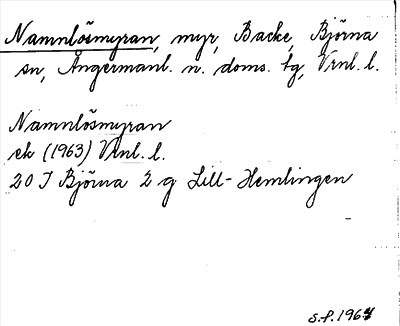 Namnlösmyran, myr, Backe, Björna
sn, Ångermanl. n. doms. tg, Vrnl. l.
Namnlösmyran
ek (1963) Vrnl. l.
20 J Björna 2 g Lill-Hemlingen
S.P. 1967